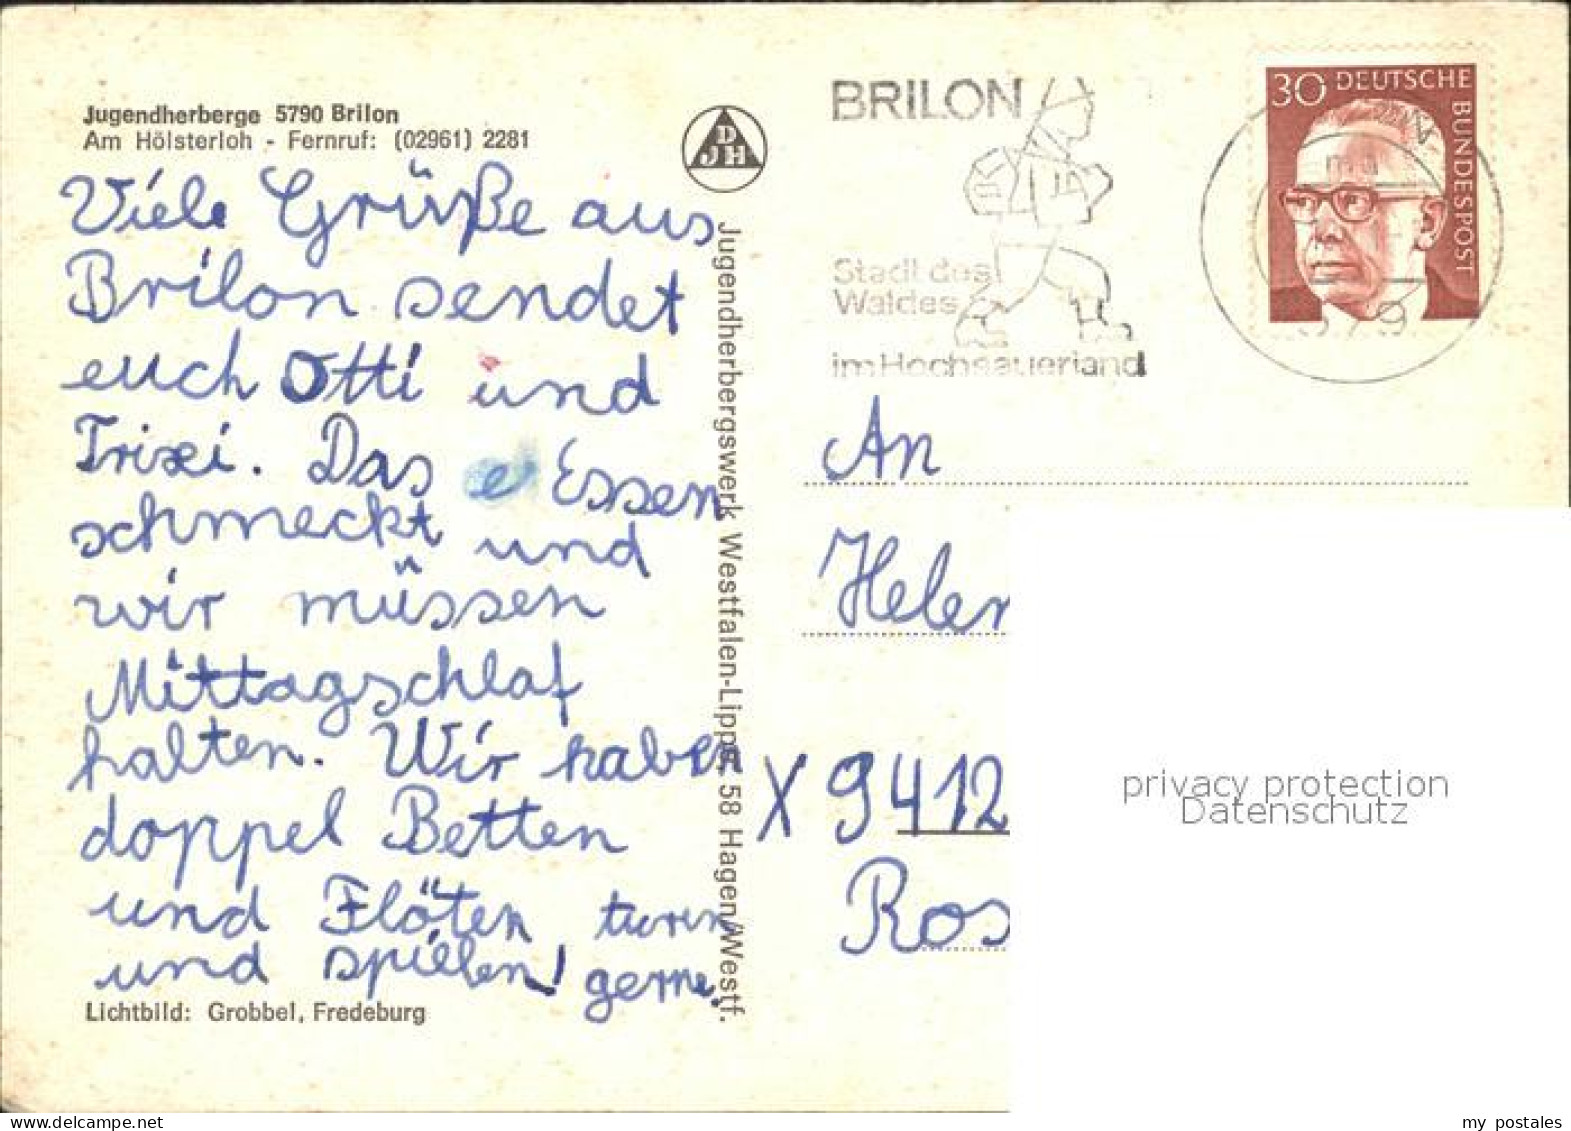 Jugendherberge 5790 Brilon
Am Hölsterloh - Fernruf: (02961) 2281
Viele Grüße aus
Brilon sendet
euch Otti und
Trixi. Das e Essen
schmeckt und
wir müssen
Mittagschlaf
halten. Wir haben
doppel Betten
und Flöten turen
und spielen! gerne.
Lichtbild: Grobbel, Fredeburg
DJH
Jugendherbergswerk Westfalen-Lippe, 58 Hagen/Westf.
BRILON
Stadt des
Waldes
im Hochsauerland
30 DEUTSCHE
BUNDESPOST
579
An
Helen
X 9412
Ros
privacy protection
Datenschutz
my postales